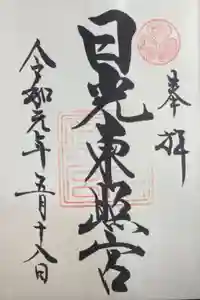 奉拝
日光東照宮
令和元年五月十八日